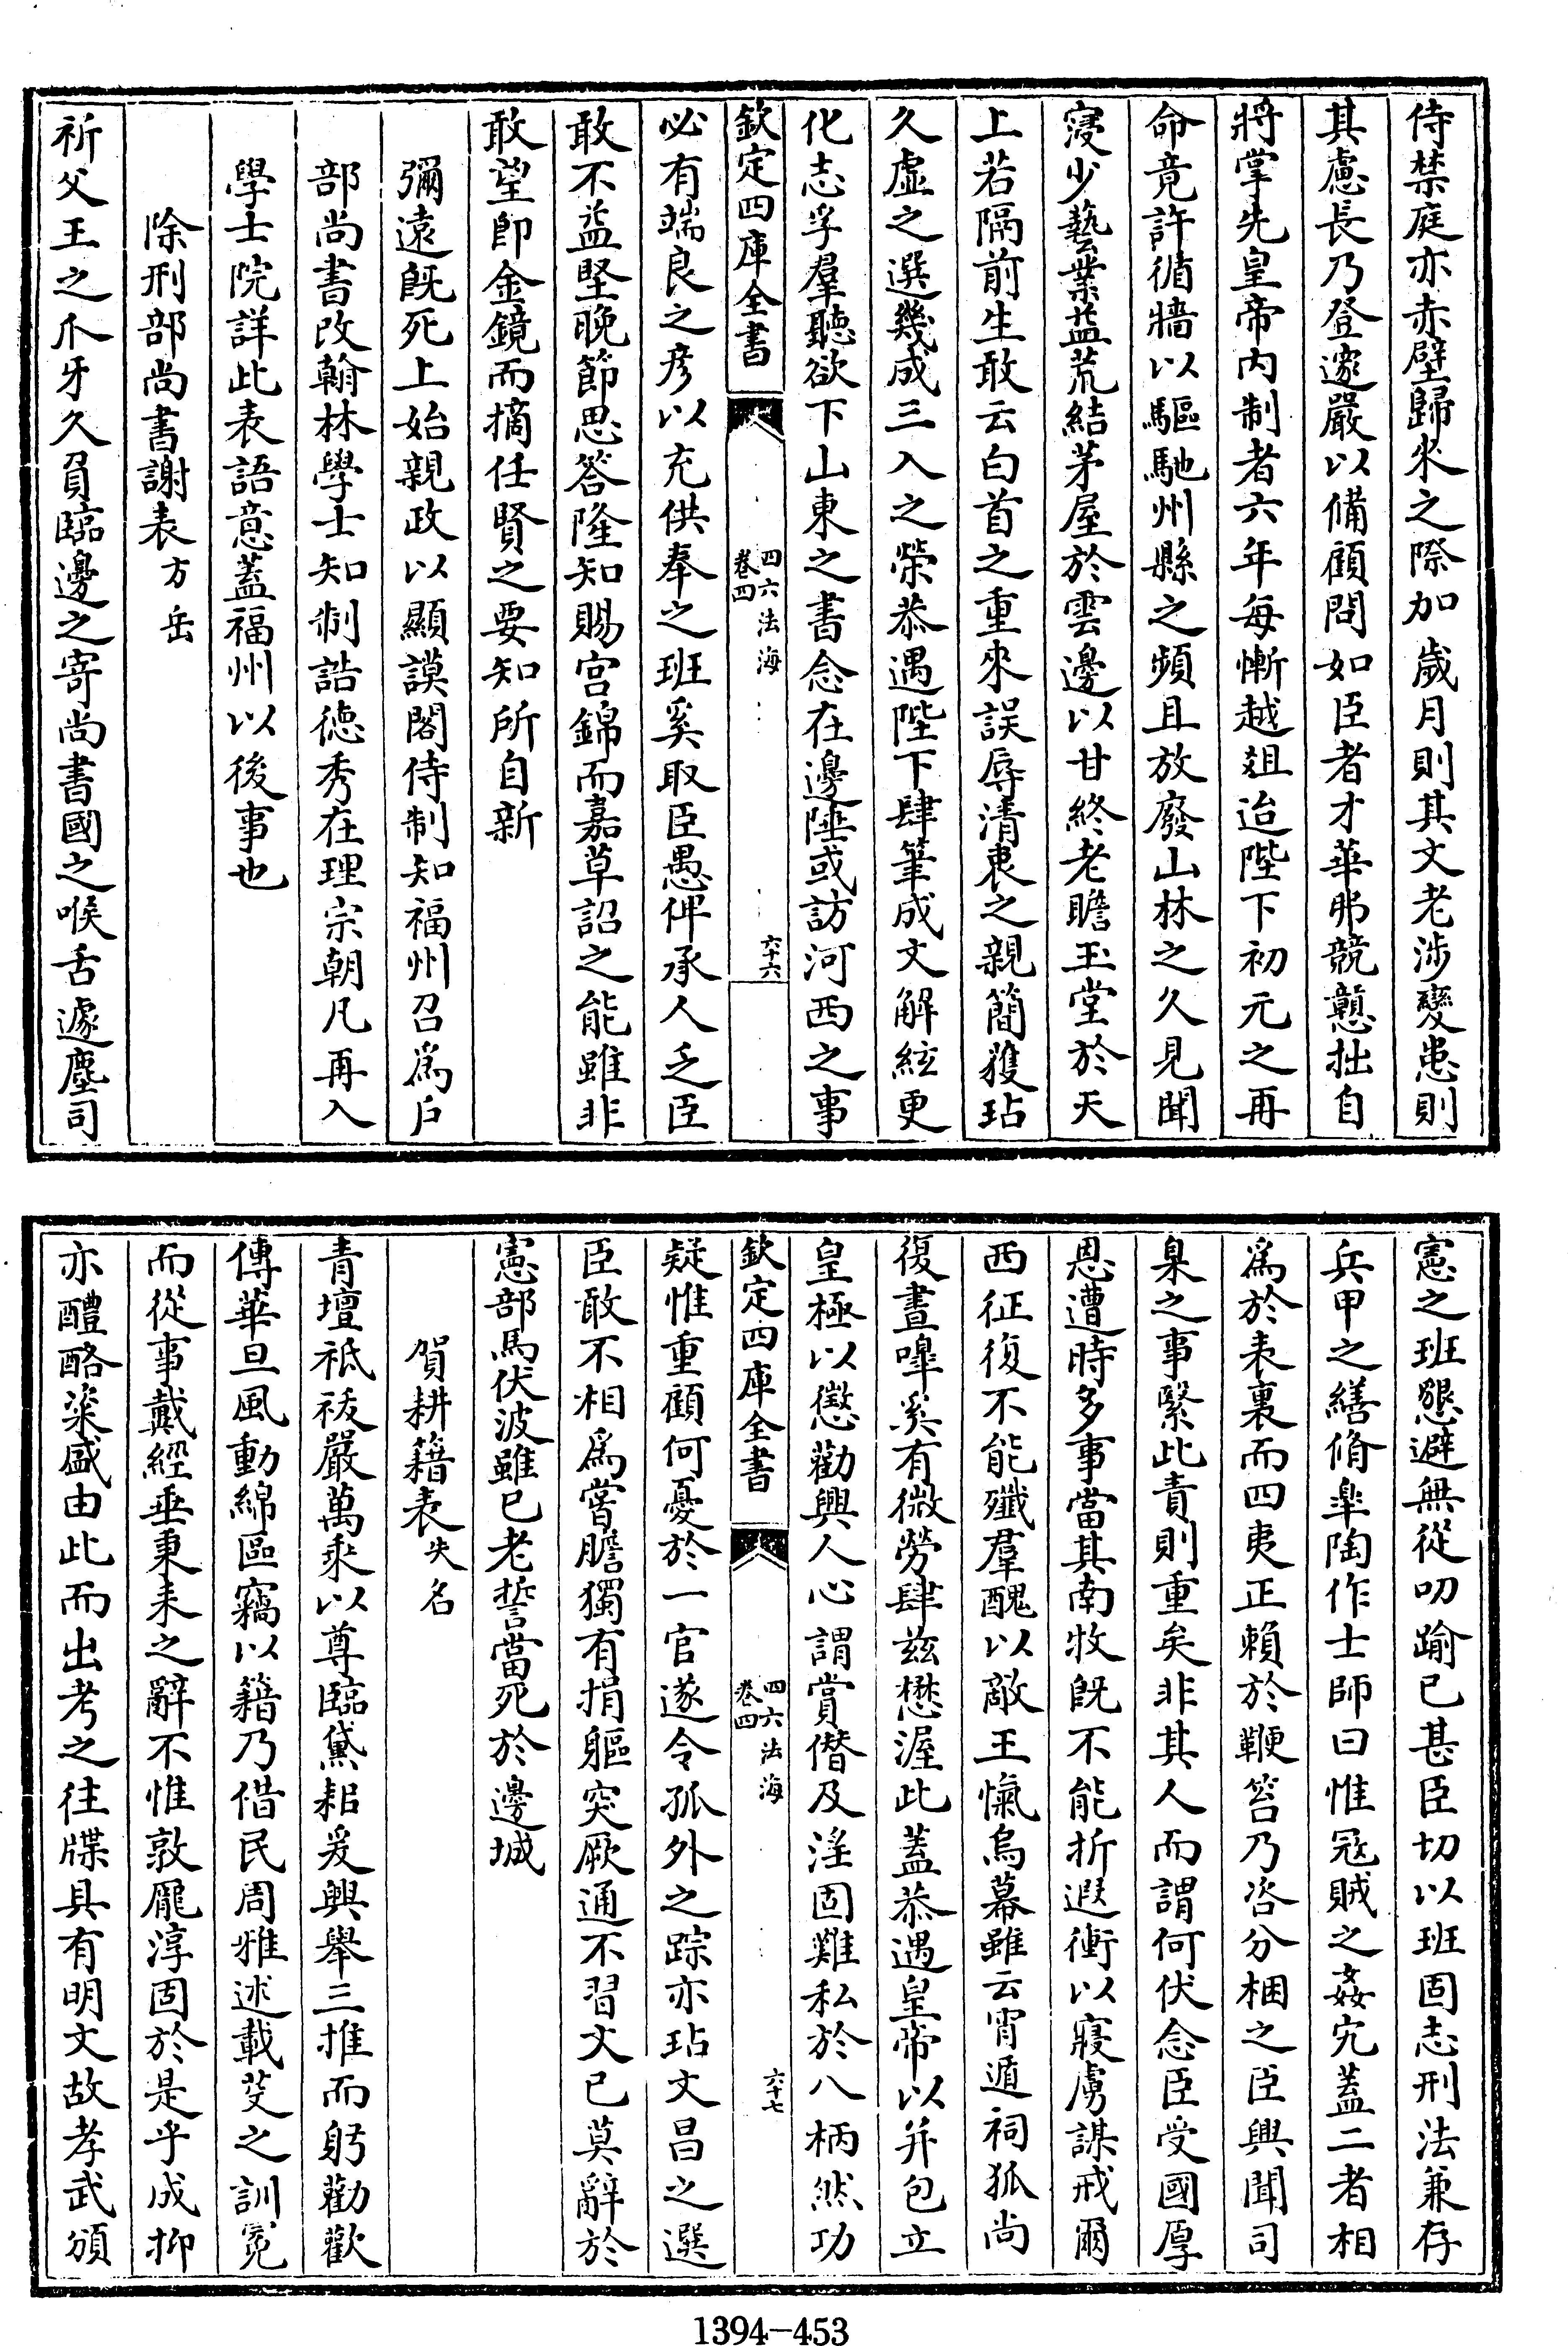 侍禁庭亦赤壁歸來之際加歲月則其文老涉變患則
其慮長乃登邃嚴以備顧問如臣者才華弗競戇拙自
將掌先皇帝内制者六年每慚越俎迨陛下初元之再
命竟許循牆以驅馳州縣之頻且放廢山林之久見聞
寖少藝業益荒結茅屋於雲邊以甘終老瞻玉堂於天
上若隔前生敢云白首之重來誤辱清衷之親簡獲玷
久虚之選幾成三入之榮恭遇陛下肆筆成文解絃更
化志孚羣聽欲下山東之書念在邊陲或訪河西之事
欽定四庫全書
四六法海
卷四
六十六
必有端良之彦以充供奉之班奚取臣愚俾承人乏臣
敢不益堅晚節思答隆知賜宫錦而嘉草詔之能雖非
敢望即金鏡而摘任賢之要知所自新
彌遠既死上始親政以顯謨閣侍制知福州召為户
部尚書改翰林學士知制誥德秀在理宗朝凡再入
學士院詳此表語意蓋福州以後事也
除刑部尚書謝表方岳
祈父王之爪牙久負臨邊之寄尚書國之喉舌遽塵司
憲之班懇避無從叨踰已甚臣切以班固志刑法兼存
兵甲之繕脩臯陶作士師曰惟冦賊之姦宄蓋二者相
為於表裏而四夷正賴於鞭笞乃咨分梱之臣與聞司
臬之事緊此責則重矣非其人而謂何伏念臣受國厚
恩遭時多事當其南牧既不能折遐衝以寢虜謀戒爾
西征復不能殲羣醜以敵王愾烏幕雖云宵遁祠狐尚
復晝嘷奚有微勞肆兹懋渥此蓋恭遇皇帝以并包立
皇極以懲勸興人心謂賞僭及淫固難私於八柄然功
欽定四庫全書
四六法海
卷四
六十七
疑惟重顧何憂於一官遂令孤外之踪亦玷文昌之選
臣敢不相為嘗膽獨有捐軀突厥通不習文已莫辭於
憲部馬伏波雖已老誓當死於邊城
賀耕籍表失名
青壇祗祓嚴萬乘以尊臨黛耜爰興舉三推而躬勸歡
傳華旦風動綿區竊以籍乃借民周雅述載芟之訓冕
而從事戴經垂秉耒之辭不惟敦龐淳固於是乎成抑
亦醴酪粢盛由此而出考之往牒具有明文故孝武頒
1394-453